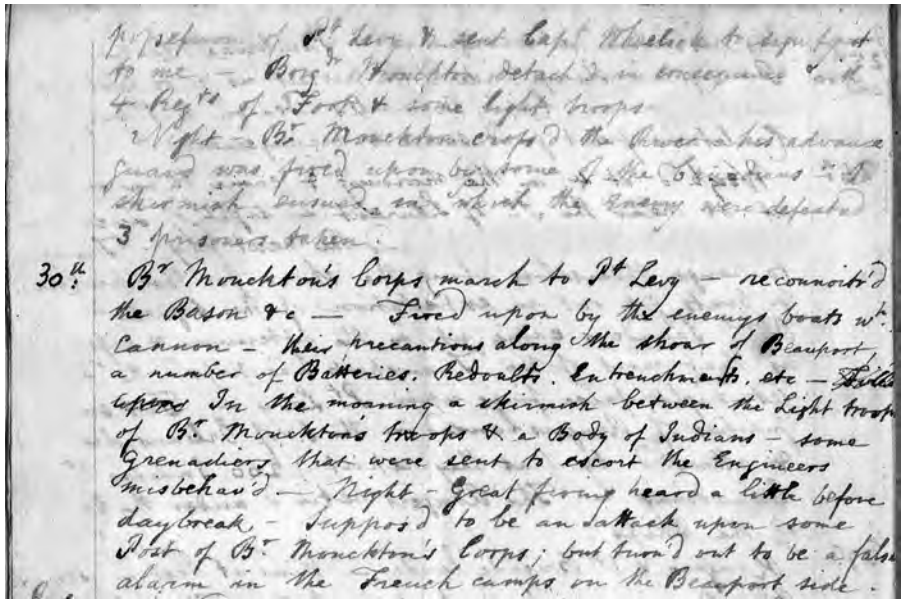 possession of Pt. Levy & sent Capt. Wheelock to signify it
to me — Brigr Monckton detach'd in consequence with
4 Regts of Foot & some light troops
Night — Br. Monckton cross'd the River — his advance
guard was fired upon by some of the Canadians — A
skirmish ensued, in which the Enemy were defeated
3 prisoners taken.
30th. Br Monckton's Corps march to Pt Levy — reconnoitr'd
the Bason &c — Fired upon by the enemys boats wth.
Cannon — their precautions along the shoar of Beauport,
a number of Batteries. Redoubts. Entrenchments. etc —
upon In the morning a skirmish between the Light troops
of Br. Moncktons troops & a Body of Indians — some
Grenadiers that were sent to escort the Engineers
misbehav'd — Night — Great firing heard a little before
daybreak — Suppos'd to be an attack upon some
Post of Br. Monckton's Corps; but turn'd out to be a false
alarm in the French camps on the Beauport side.